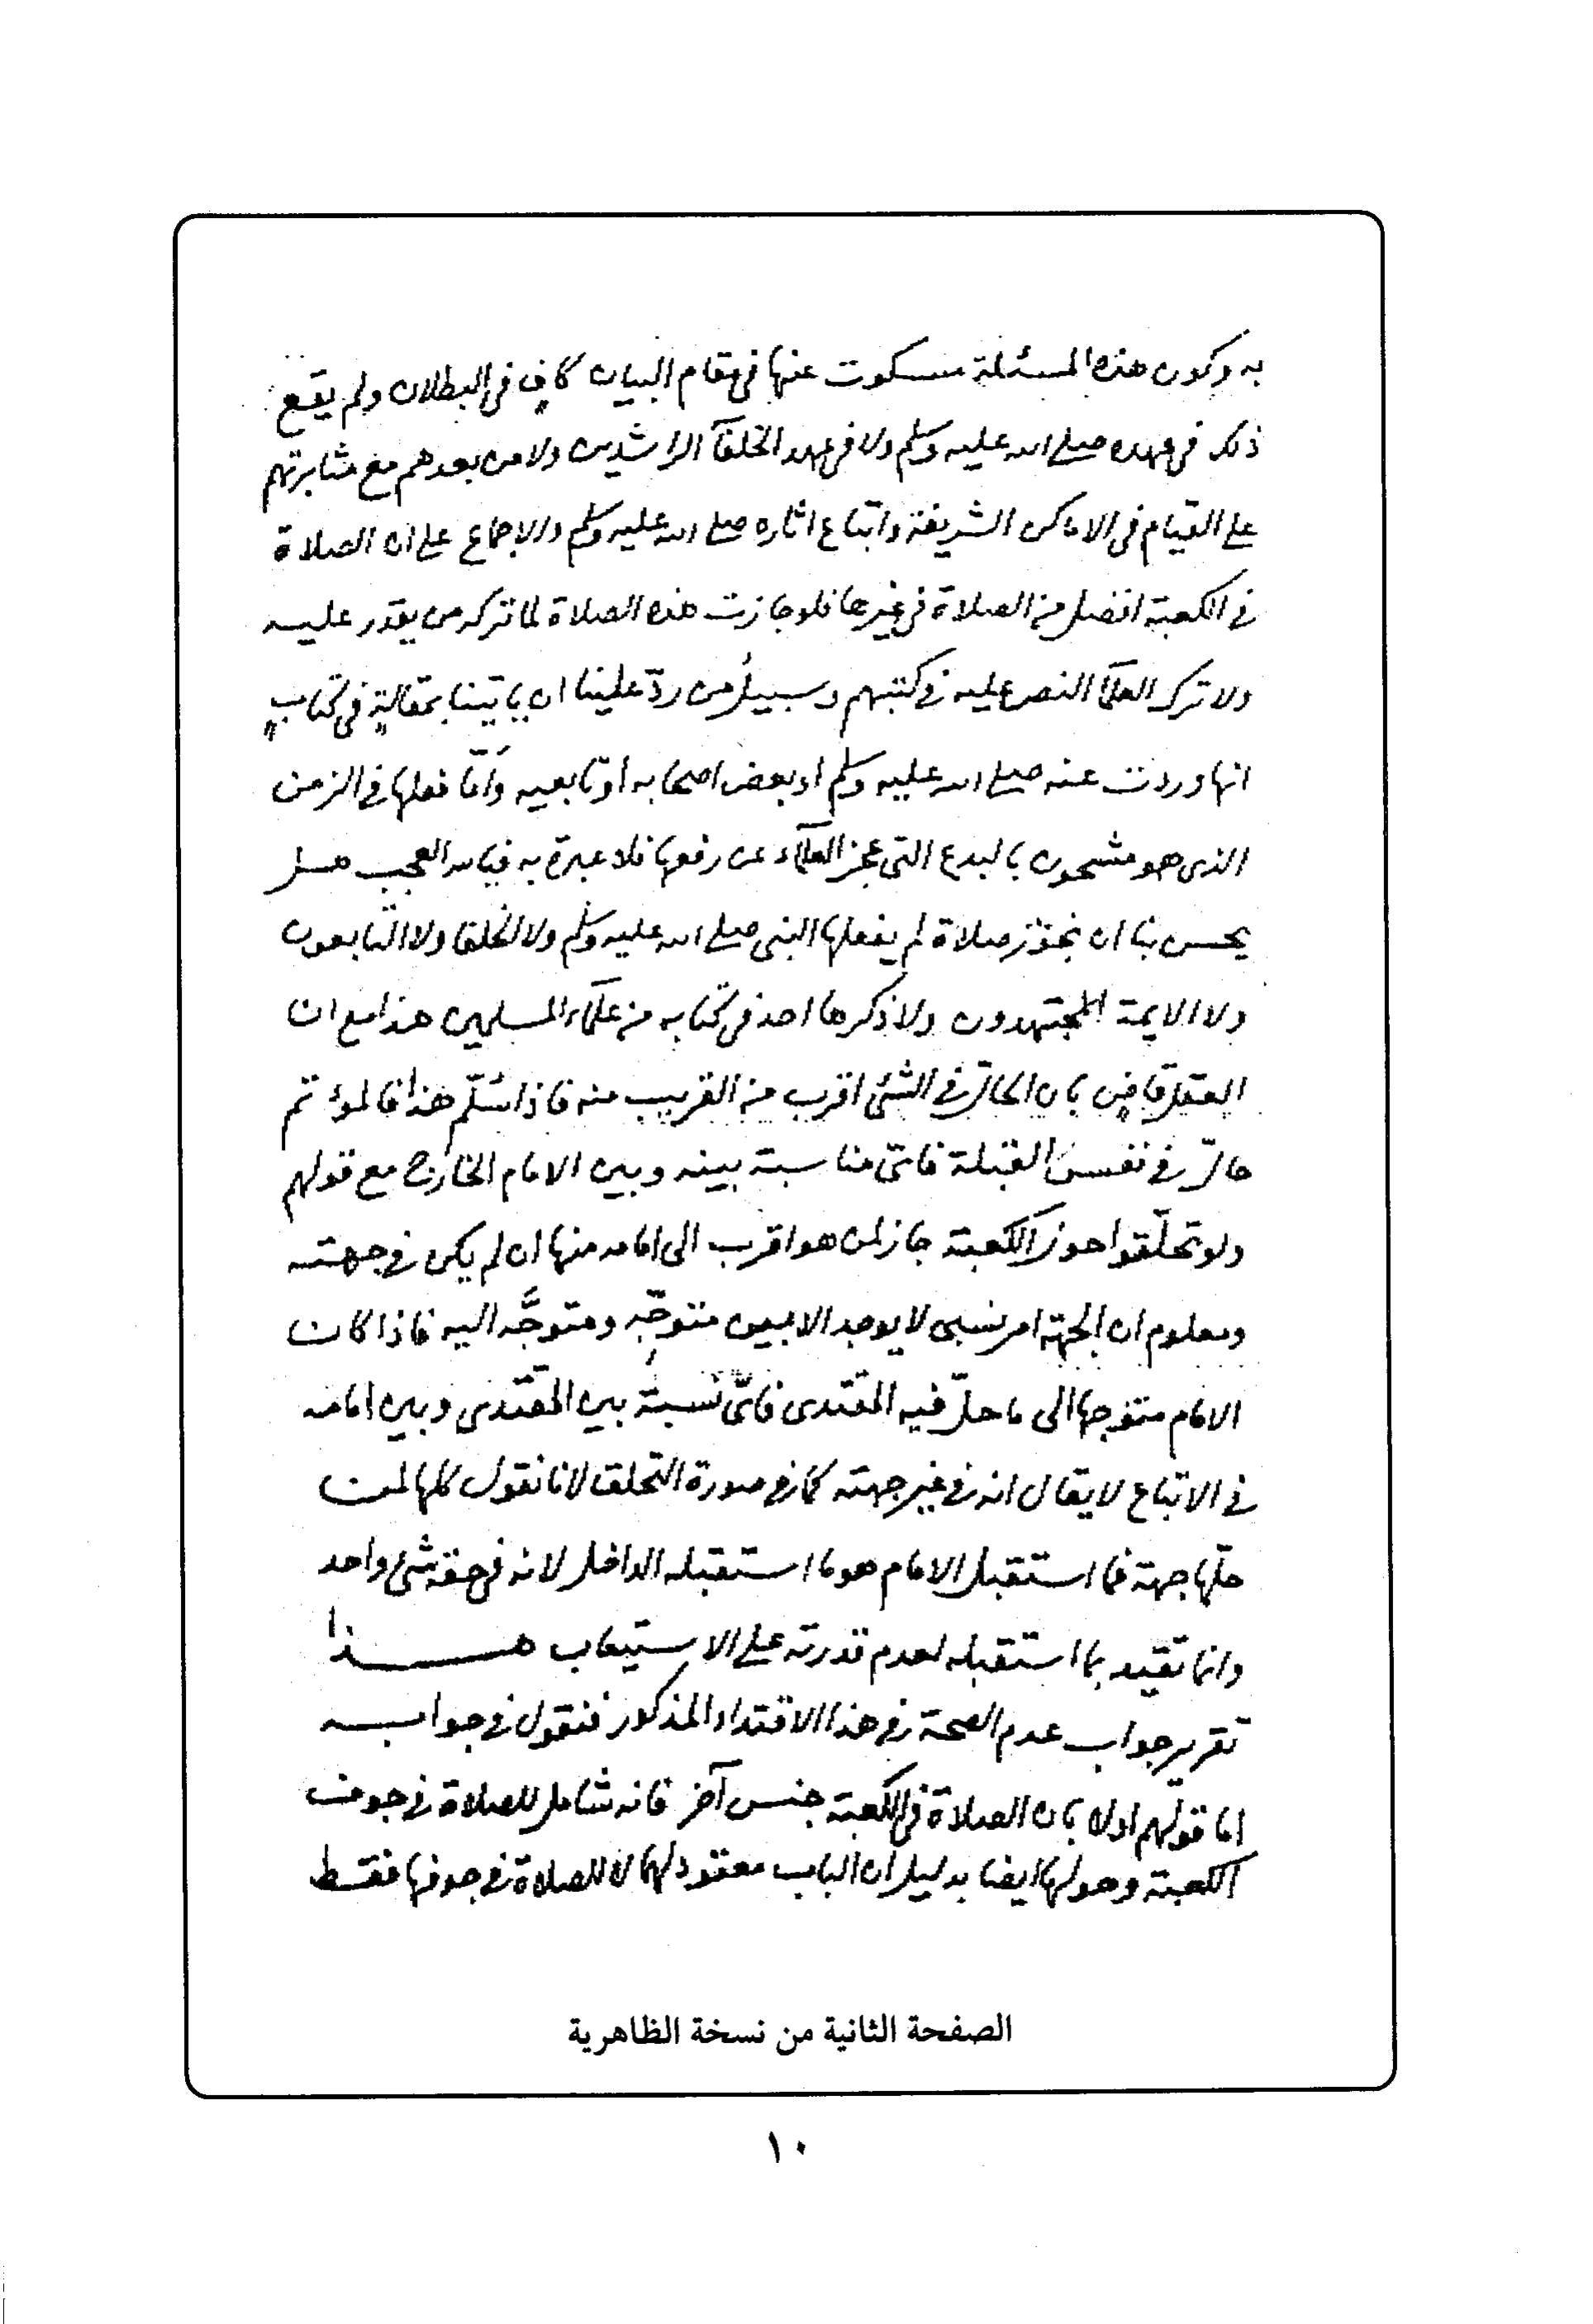 به وكون هذه المسئلة مسكوت عنها فى مقام البيان كافٍ فى البطلان ولم يقع
ذلك فى عهده صلى الله عليه وسلم ولا فى عهد الخلفآ الراشدين ولا من بعدهم مع مثابرتهم
على القيام فى الاماكن الشريفة واتباع اثاره صلى الله عليه وسلم والاجماع على ان الصلاة
فى الكعبة افضل من الصلاة فى غيرها فلو جازت هذه الصلاة لما تركه من يقدر عليه
ولا ترك العلمآ النص عليه فى كتبهم وسبيل من ردّ علينا ان ياتينا بمقالةٍ فى كتابٍ
انها وردت عنه صلى الله عليه وسلم او بعض اصحابه او تابعيه وَامّا فعلها فى الزمن
الذى هو مشحون بالبدع التى عجز العلمآء عن رفعها فلا عبرة به فيالله العجب هل
يحسن بنا ان نجوّز صلاة لم يفعلها النبى صلى الله عليه وسلم ولا الخلفا ولا التابعون
ولا الايمة المجتهدون ولا ذكرها احد فى كتابه من علمآء المسلمين هذا مع ان
العقل قاضٍ بان الحالّ فى الشئ اقرب من القريب منه فاذا سُلّم هذا فالمؤتم
حالّ فى نفس القبلة فاىّ مناسبة بينه وبين الامام الخارج مع قولهم
ولو تحلّقوا حول الكعبة جاز لمن هو اقرب الى امامه منها ان لم يكن فى جهته
ومعلوم ان الجهة امر نسبى لا يوجد الا بين متوجّه ومتوجَّه اليه فاذا كان
الامام متوجها الى ما حلّ فيه المقتدى فاىّ نسبة بين المقتدى وبين امامه
فى الاتباع لا يقال انه فى غير جهته كما فى صورة التحلق لانا نقول كلها لمن
حلّها جهة فما استقبل الامام هو ما استقبله الداخل لانه فى حقه شئ واحد
وانما تقيد بما استقبله لعدم قدرته على الاستيعاب هذا
تقرير جواب عدم الصحة فى هذا الاقتداء المذكور فنقول فى جوابه
اما قولهم اولا بان الصلاة فى الكعبة جنس آخر فانه شامل للصلاة فى جوف
الكعبة وحولها ايضا بدليل ان الباب معقود لهما لا للصلاة فى جوفها فقط
الصفحة الثانية من نسخة الظاهرية
١٠